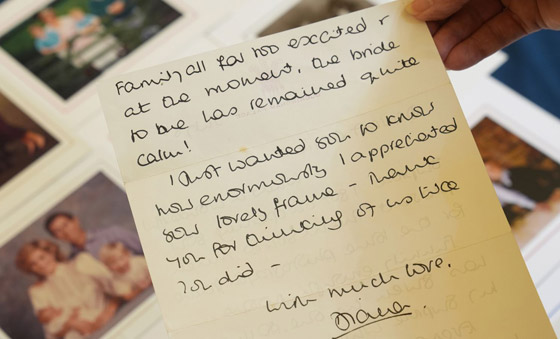 Family all far too excited &
at the moment, the bride
to be has remained quite
calm!
I just wanted you to know
how enormously I appreciated
your lovely frame - thank
you for thinking of us like
you did -
With much love,
Diana.